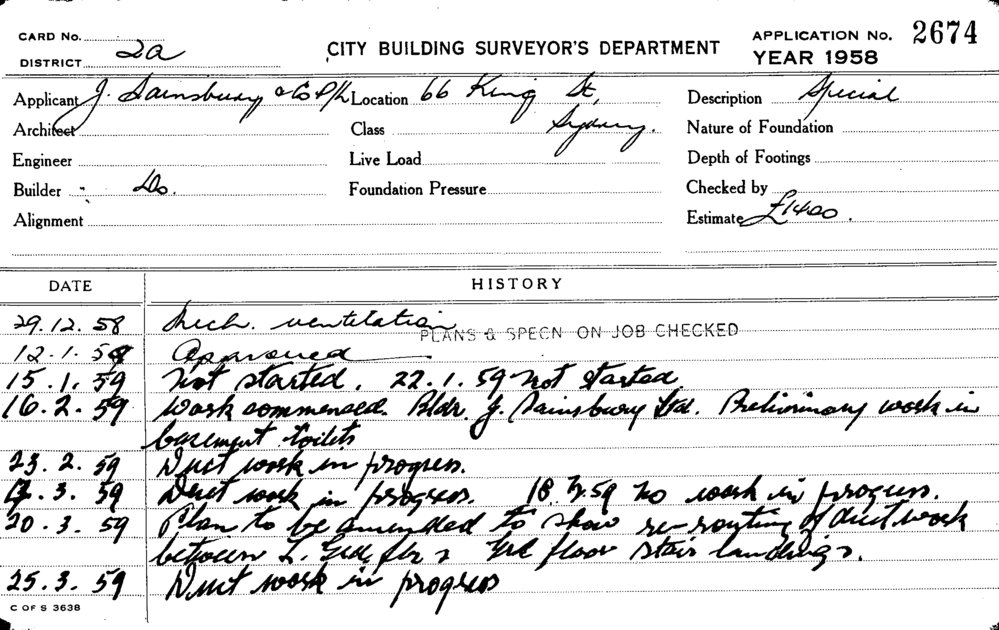 CARD No.
DISTRICT 2a
CITY BUILDING SURVEYOR'S DEPARTMENT
APPLICATION No. 2674
YEAR 1958
Applicant J. Sainsbury & Co P/L Location 66 King St, Description Special
Architect Class Sydney. Nature of Foundation
Engineer Live Load Depth of Footings
Builder " Do. Foundation Pressure Checked by
Alignment Estimate £1400.
DATE HISTORY
29.12.58 Mech. ventilation
PLANS & SPECN ON JOB CHECKED
12.1.59 Approved
15.1.59 Not started. 22.1.59 Not started
16.2.59 Work commenced. Bldr. J. Sainsbury Ltd. Preliminary work in
basement toilets
23.2.59 Duct work in progress.
3.59 Duct work in progress. 18.3.59 No work in progress.
20.3.59 Plan to be amended to show re-routing of duct work
between L. Grd flr & Grd floor stair landings.
25.3.59 Duct work in progress
C OF S 3638